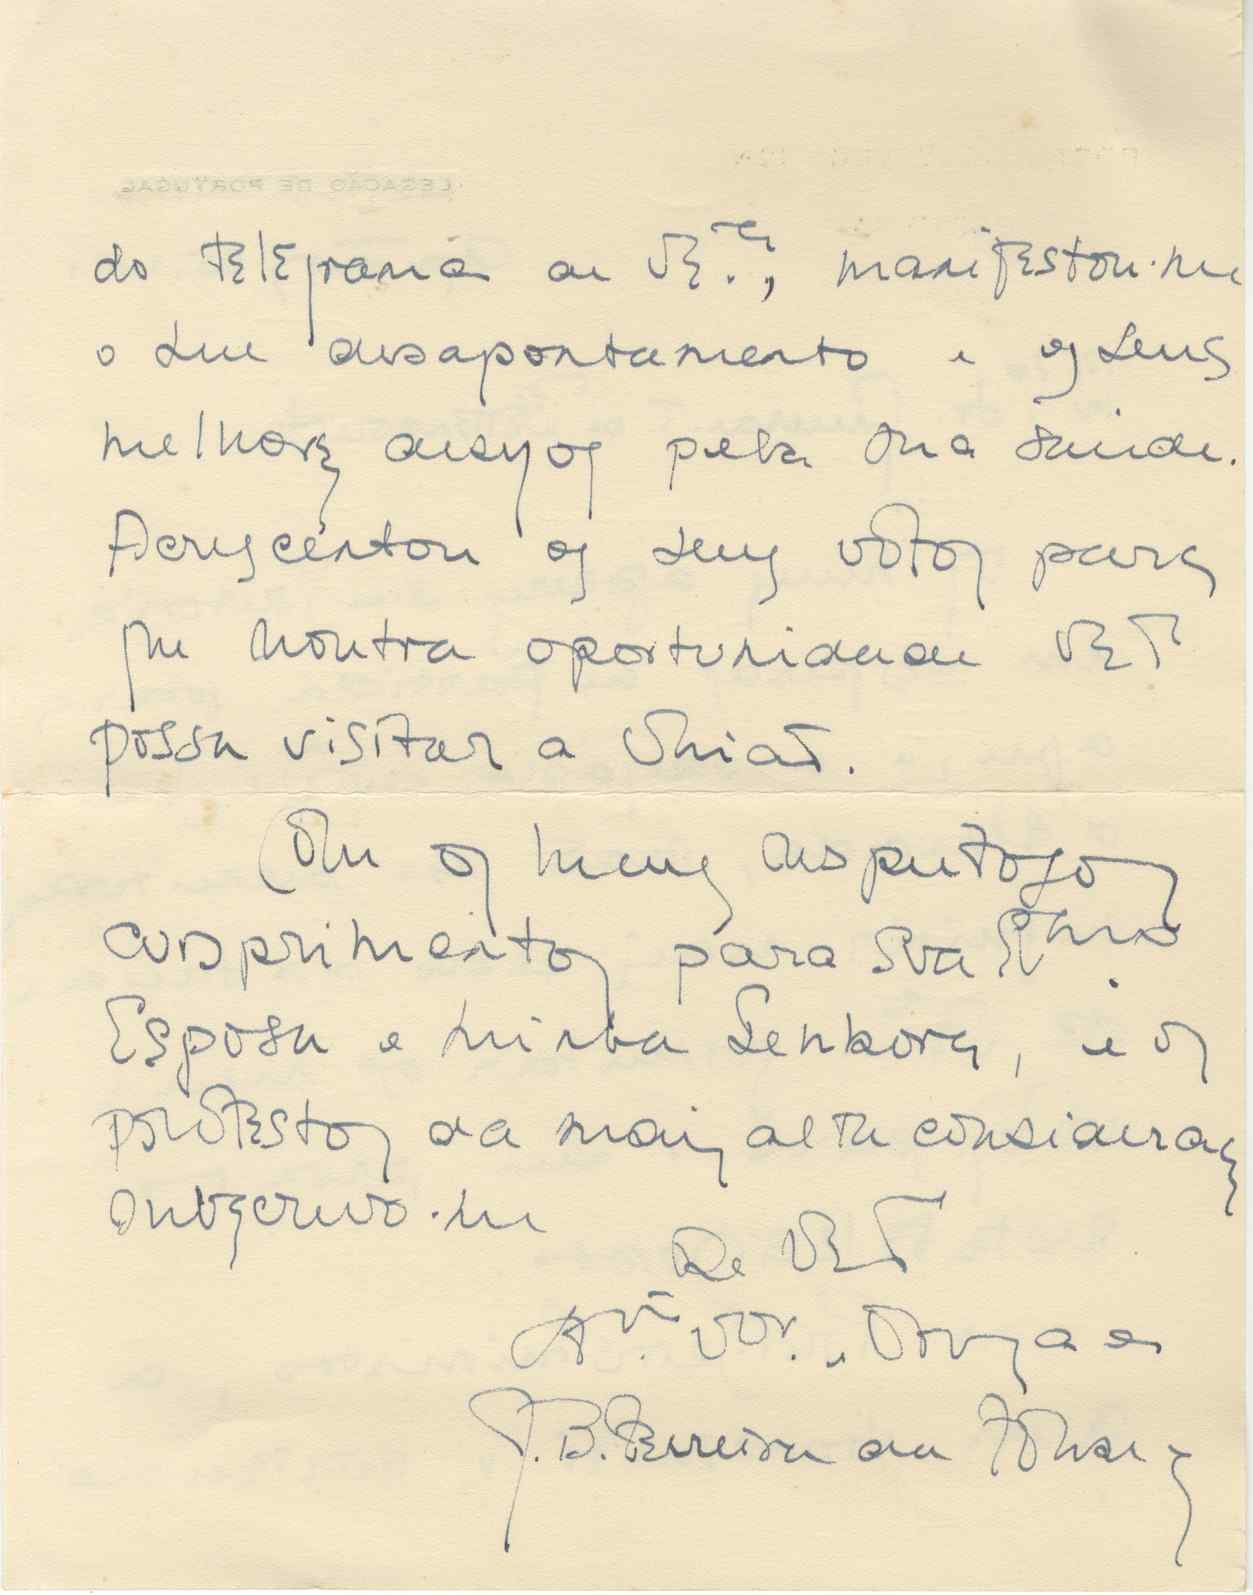 do telegrama de V.Exª., manifestou-me
o seu desapontamento e os seus
melhores desejos pela sua saude.
Acrescentou os seus votos para
que noutra oportunidade V Exª
possa visitar a União.
Com os meus respeitosos
cumprimentos para Sua Exma.
Esposa e minha Senhora, e os
protestos da mais alta consideração
subscrevo-me
De V Exª
Atº. Vor. e Obrgado
J. B. Ferreira da Fonseca
LEGAÇÃO DE PORTUGAL